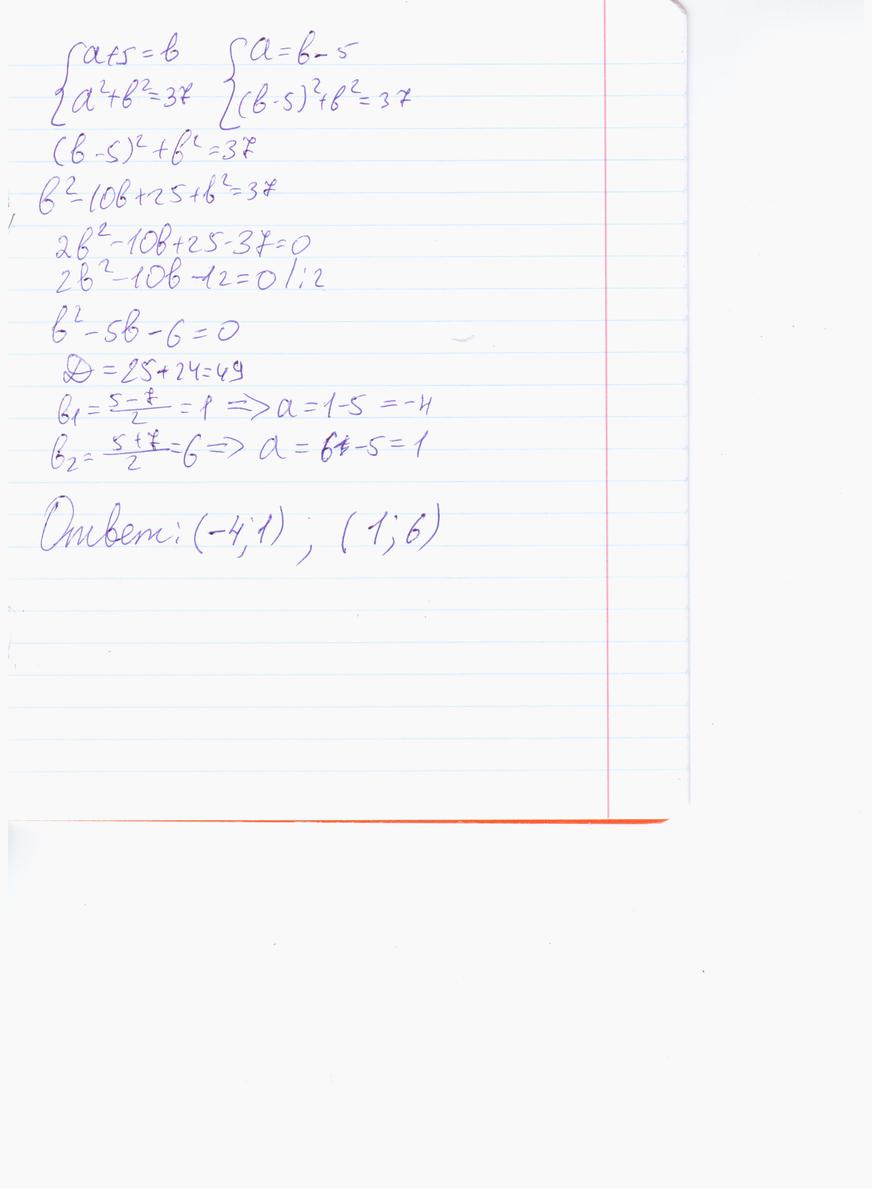 {a+5=в {a=в-5
{a²+в²=37 {(в-5)²+в²=37
(в-5)²+в²=37
в²-10в+25+в²=37
2в²-10в+25-37=0
2в²-10в-12=0 /:2
в²-5в-6=0
D=25+24=49
в₁=(5-7)/2=1 => a=1-5=-4
в₂=(5+7)/2=6 => a=6-5=1
Ответ: (-4;1) ; (1;6)